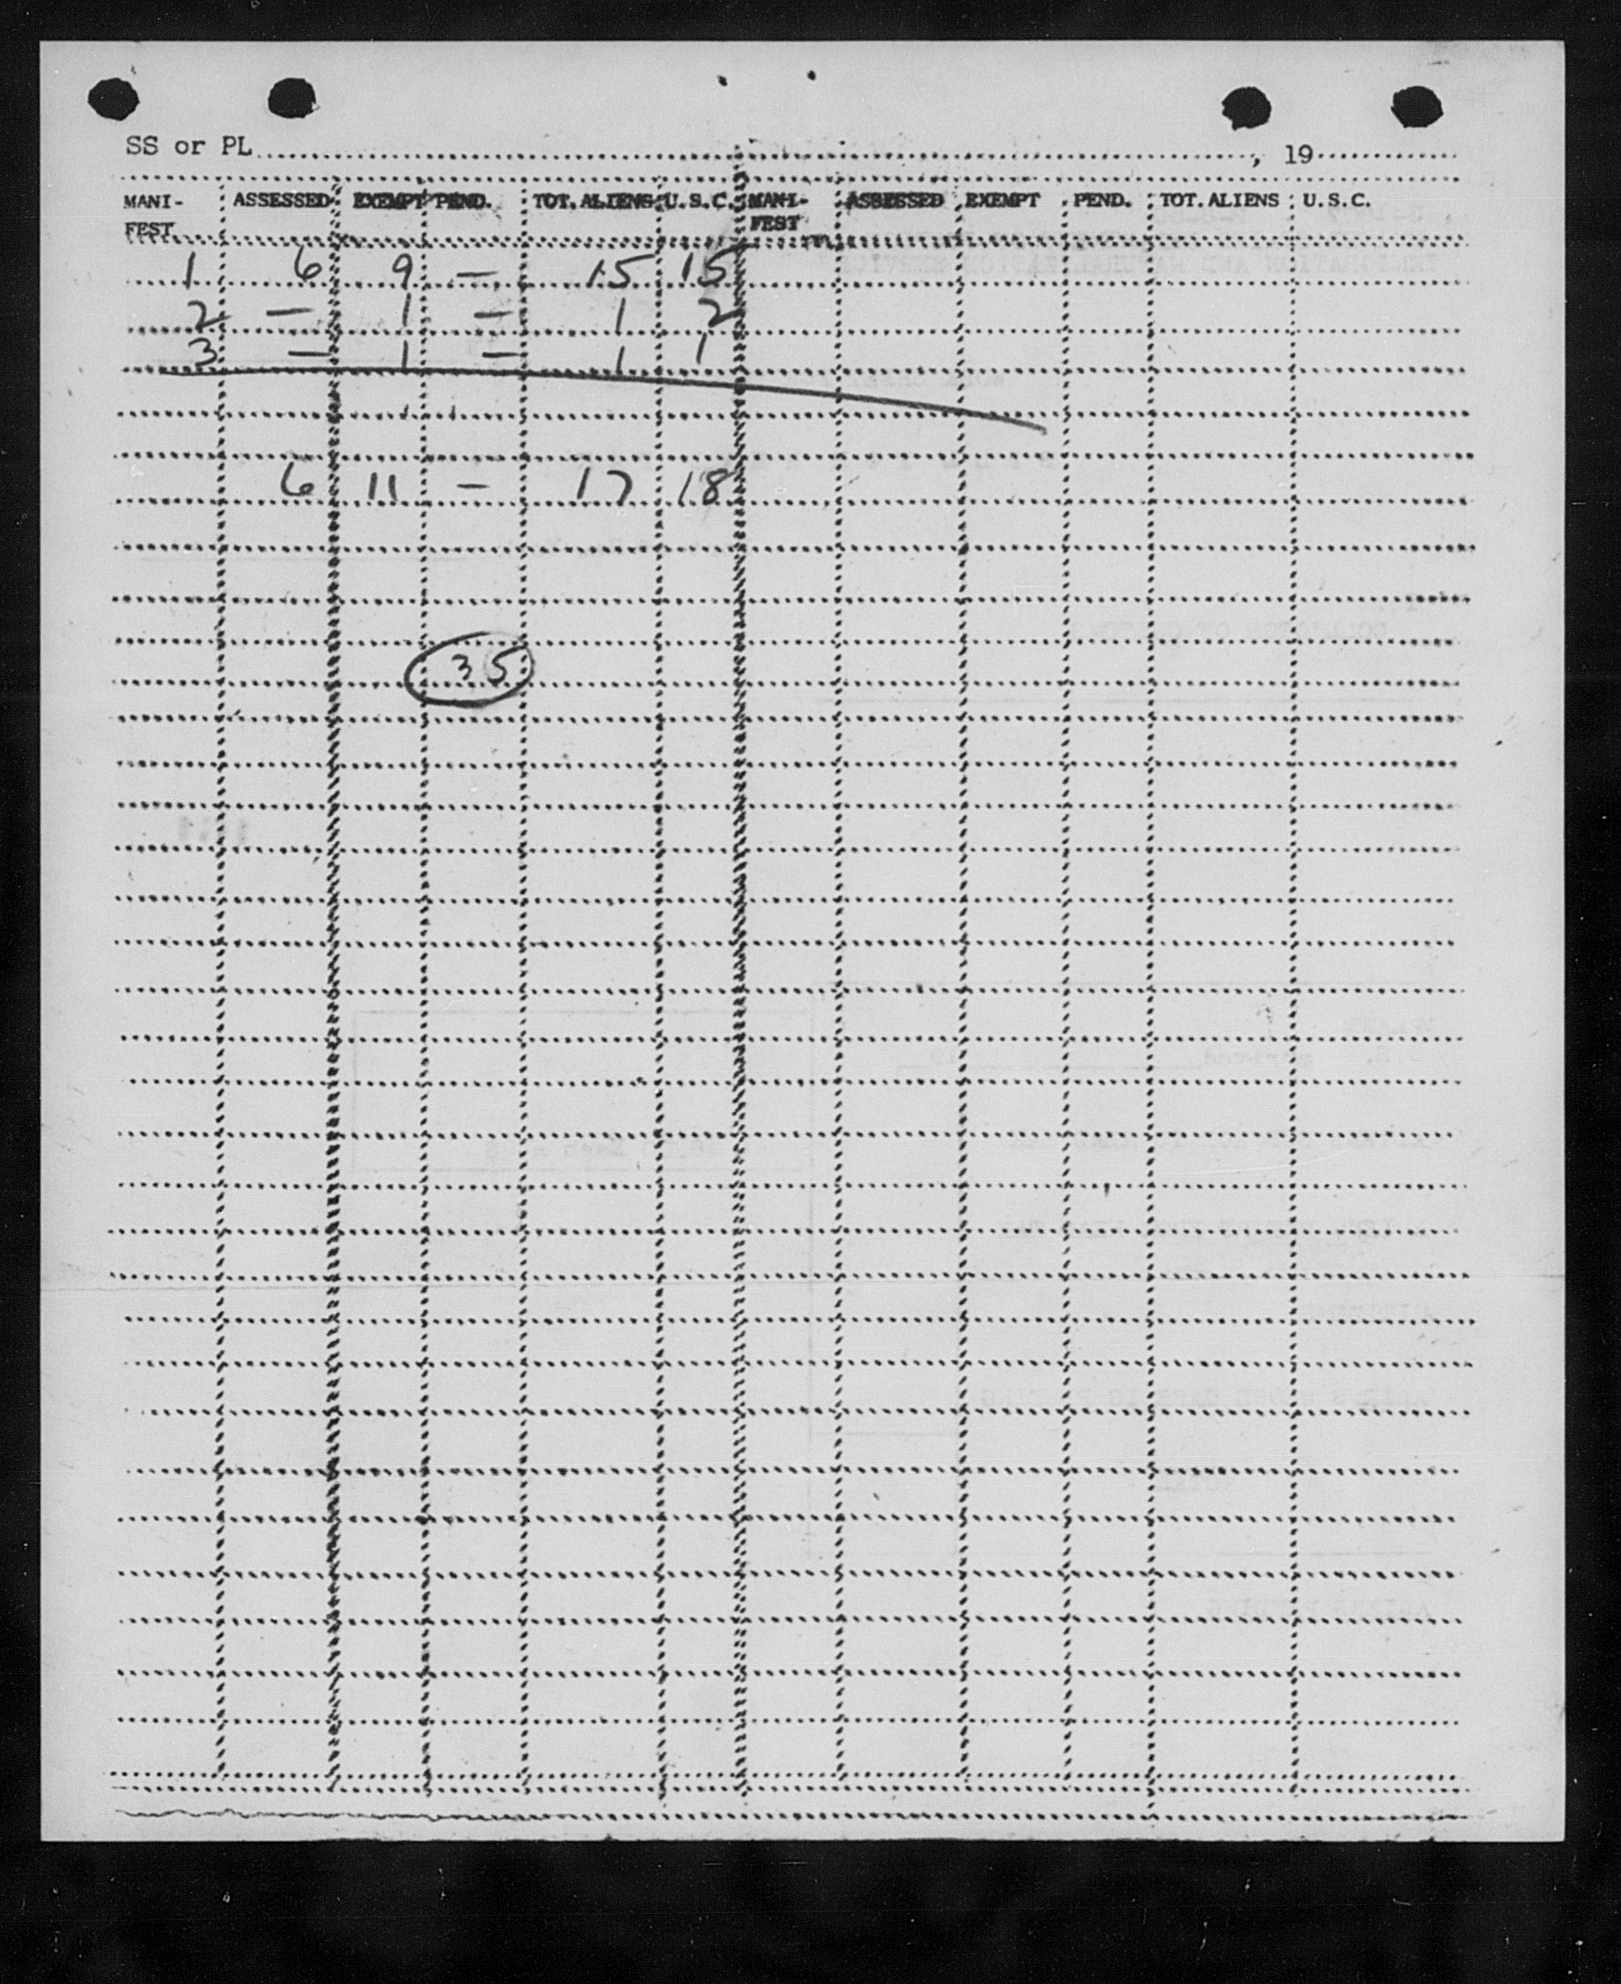 SS or PL , 19
MANI- ASSESSED EXEMPT PEND. TOT. ALIENS U.S.C. MANI- ASSESSED EXEMPT PEND. TOT. ALIENS U.S.C.
FEST FEST
1 6 9 — 15 15
2 — 1 — 1 2
3 — 1 — 1 1
6 11 — 17 18
35